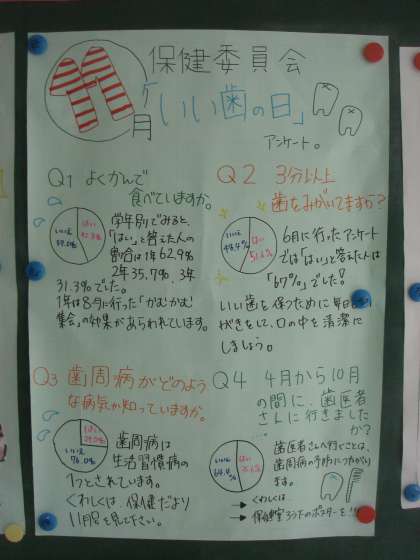 保健委員会
11月
「いい歯の日」
アンケート。
Q1 よくかんで
食べていますか。
はい
いいえ
学年別でみると、
「はい」と答えた人の
割合は1年62.9%
2年35.7%、3年
31.3%でした。
1年は8月に行った「かむかむ
集会」の効果があらわれています。
Q2 3分以上
歯をみがいてますか?
いいえ
48.4%
はい
51.6%
6月に行ったアンケート
では「はい」と答えた人は
「67%」でした!
いい歯を保つために毎日
がきをして、口の中を清潔に
しましょう。
Q3 歯周病がどのよう
な病気か知っていますか。
はい
24.0%
いいえ
76.0%
歯周病は
生活習慣病の
1つとされています。
くわしくは、保健だより
11月号を見て下さい。
Q4 4月から10月
の間に、歯医者
さんに行きました
か?
いいえ
はい
歯医者さんへ行くことは、
歯周病の予防につながり
ます。
くわしくは
→保健室ろう下のポスターを!!